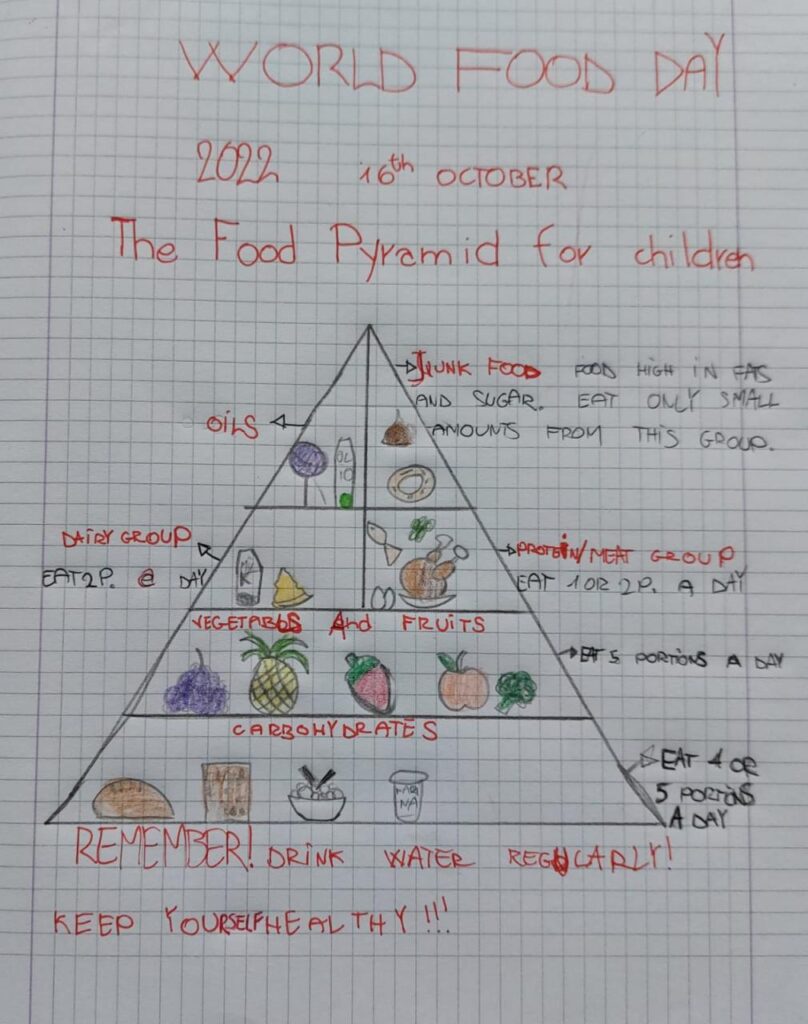 WORLD FOOD DAY
2022 16th OCTOBER
The Food Pyramid for children
JUNK FOOD FOOD HIGH IN FAS
AND SUGAR. EAT ONLY SMALL
AMOUNTS FROM THIS GROUP.
OILS
OL
IO
DAIRY GROUP
EAT 2P. @ DAY
PROTEIN/MEAT GROUP
EAT 1 OR 2P. A DAY
VEGETABLS And FRUITS
EAT 5 PORTIONS A DAY
CARBOHYDRATES
EAT 4 OR
5 PORTIONS
A DAY
REMEMBER! DRINK WATER REGULARLY!
KEEP YOURSELF HEALTHY!!!